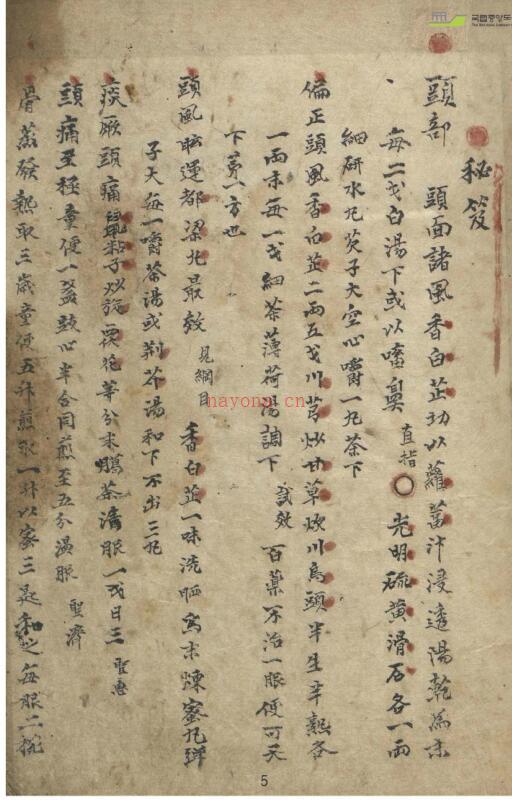 국립중앙도
秘笈
頭部 頭面諸風香白芷切以蘿葍汁浸透陽乾爲末
每二戔白湯下或以㗜鼻 直指 ○ 光明硫黃滑石各一兩
細研水丸芡子大空心嚼一丸茶下
偏正頭風香白芷二兩五戔川芎炒甘草炒川烏頭半生半熟各
一兩末每一戔細茶薄荷湯調下 試效 百藥不治一服便可天
下第一方也
頭風眩運都梁丸最效 見綱目 香白芷一味洗晒爲末煉蜜丸弹
子大每一嚼茶湯或荆芥湯和下不出三丸
痰厥頭痛 粘子炒旋覆花等分末臈茶淸服一戔日三 聖惠
頭痛至極童便一盞豉心半合同煎至五分溫服 聖濟
骨蒸發熱取三歲童便五升煎取一升以蜜三匙和之每服二椀
hayona.cn
5